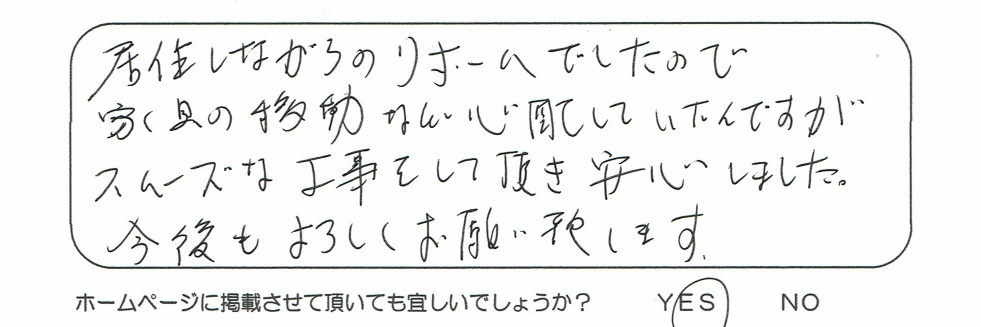 居住しながらのリホームでしたので
家具の移動など心配していたんですが
スムーズな工事をして頂き安心しました。
今後もよろしくお願い致します.
ホームページに掲載させて頂いても宜しいでしょうか? YES NO